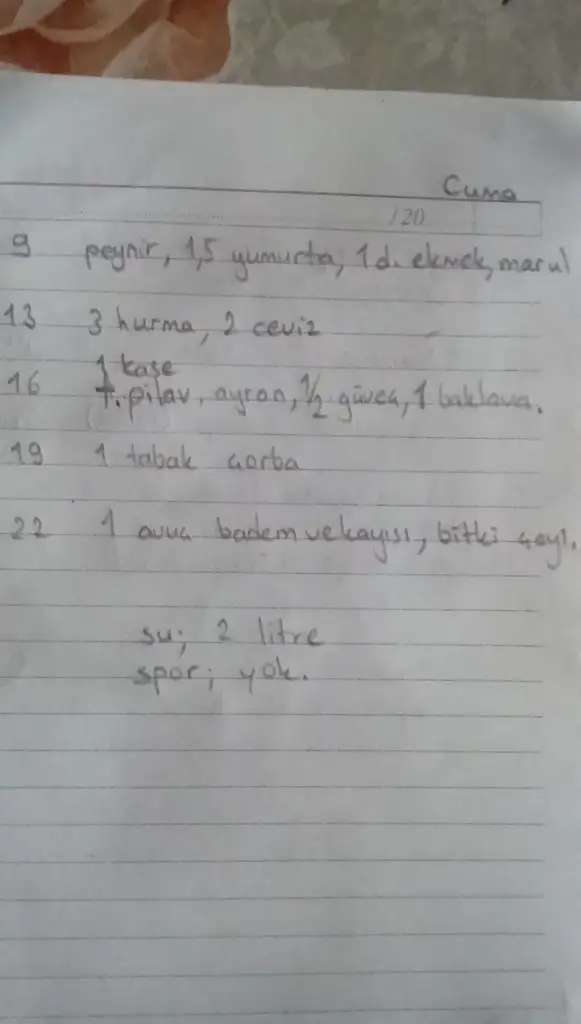 Cuma
/20
9 peynir, 1,5 yumurta, 1 d. ekmek, marul
13 3 hurma, 2 ceviz
1 kase
16 T. pilav, ayran, 1/2 güveç, 1 baklava.
19 1 tabak çorba
22 1 avuç badem ve kayısı, bitki çayı.
su; 2 litre
spor; yok.